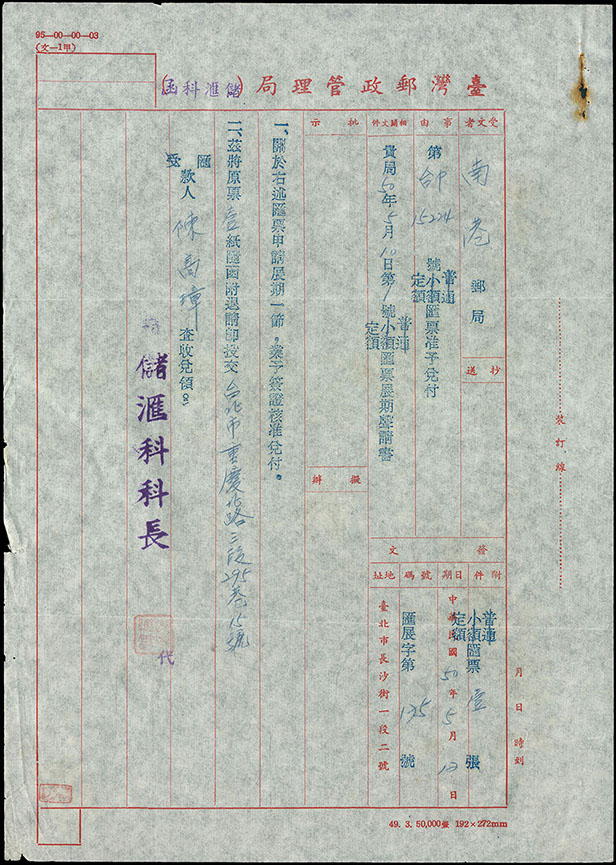 95—00—00—03
(文—1甲)
臺灣郵政管理局(儲滙科函)
受文者
南港郵局
抄送
事由
第台中15224號
普通
小額滙票准予兌付
定額
相關文件
貴局50年5月10日第1號
普通
小額滙票展期聲請書
定額
發文
附件
普通
小額滙票壹張
定額
日期
中華民國50年5月12日
號碼
滙展字第135號
地址
臺北市長沙街一段二號
批示
擬辦
一、關於右述滙票申請展期一節，業予簽證核准兌付。
二、茲將原票壹紙隨函附退請即投交台北市重慶北路三段295巷15號
滙
受
款人陳
查收兌領。
儲滙科科長
代
裝訂線
月日時刻
49. 3. 50,000疊 192×272mm